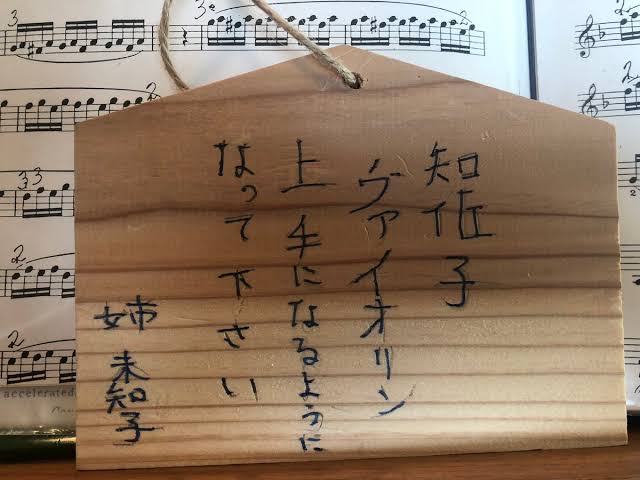 知佐子
ヴァイオリン
上手になるように
なって下さい
姉 未知子
accelerated